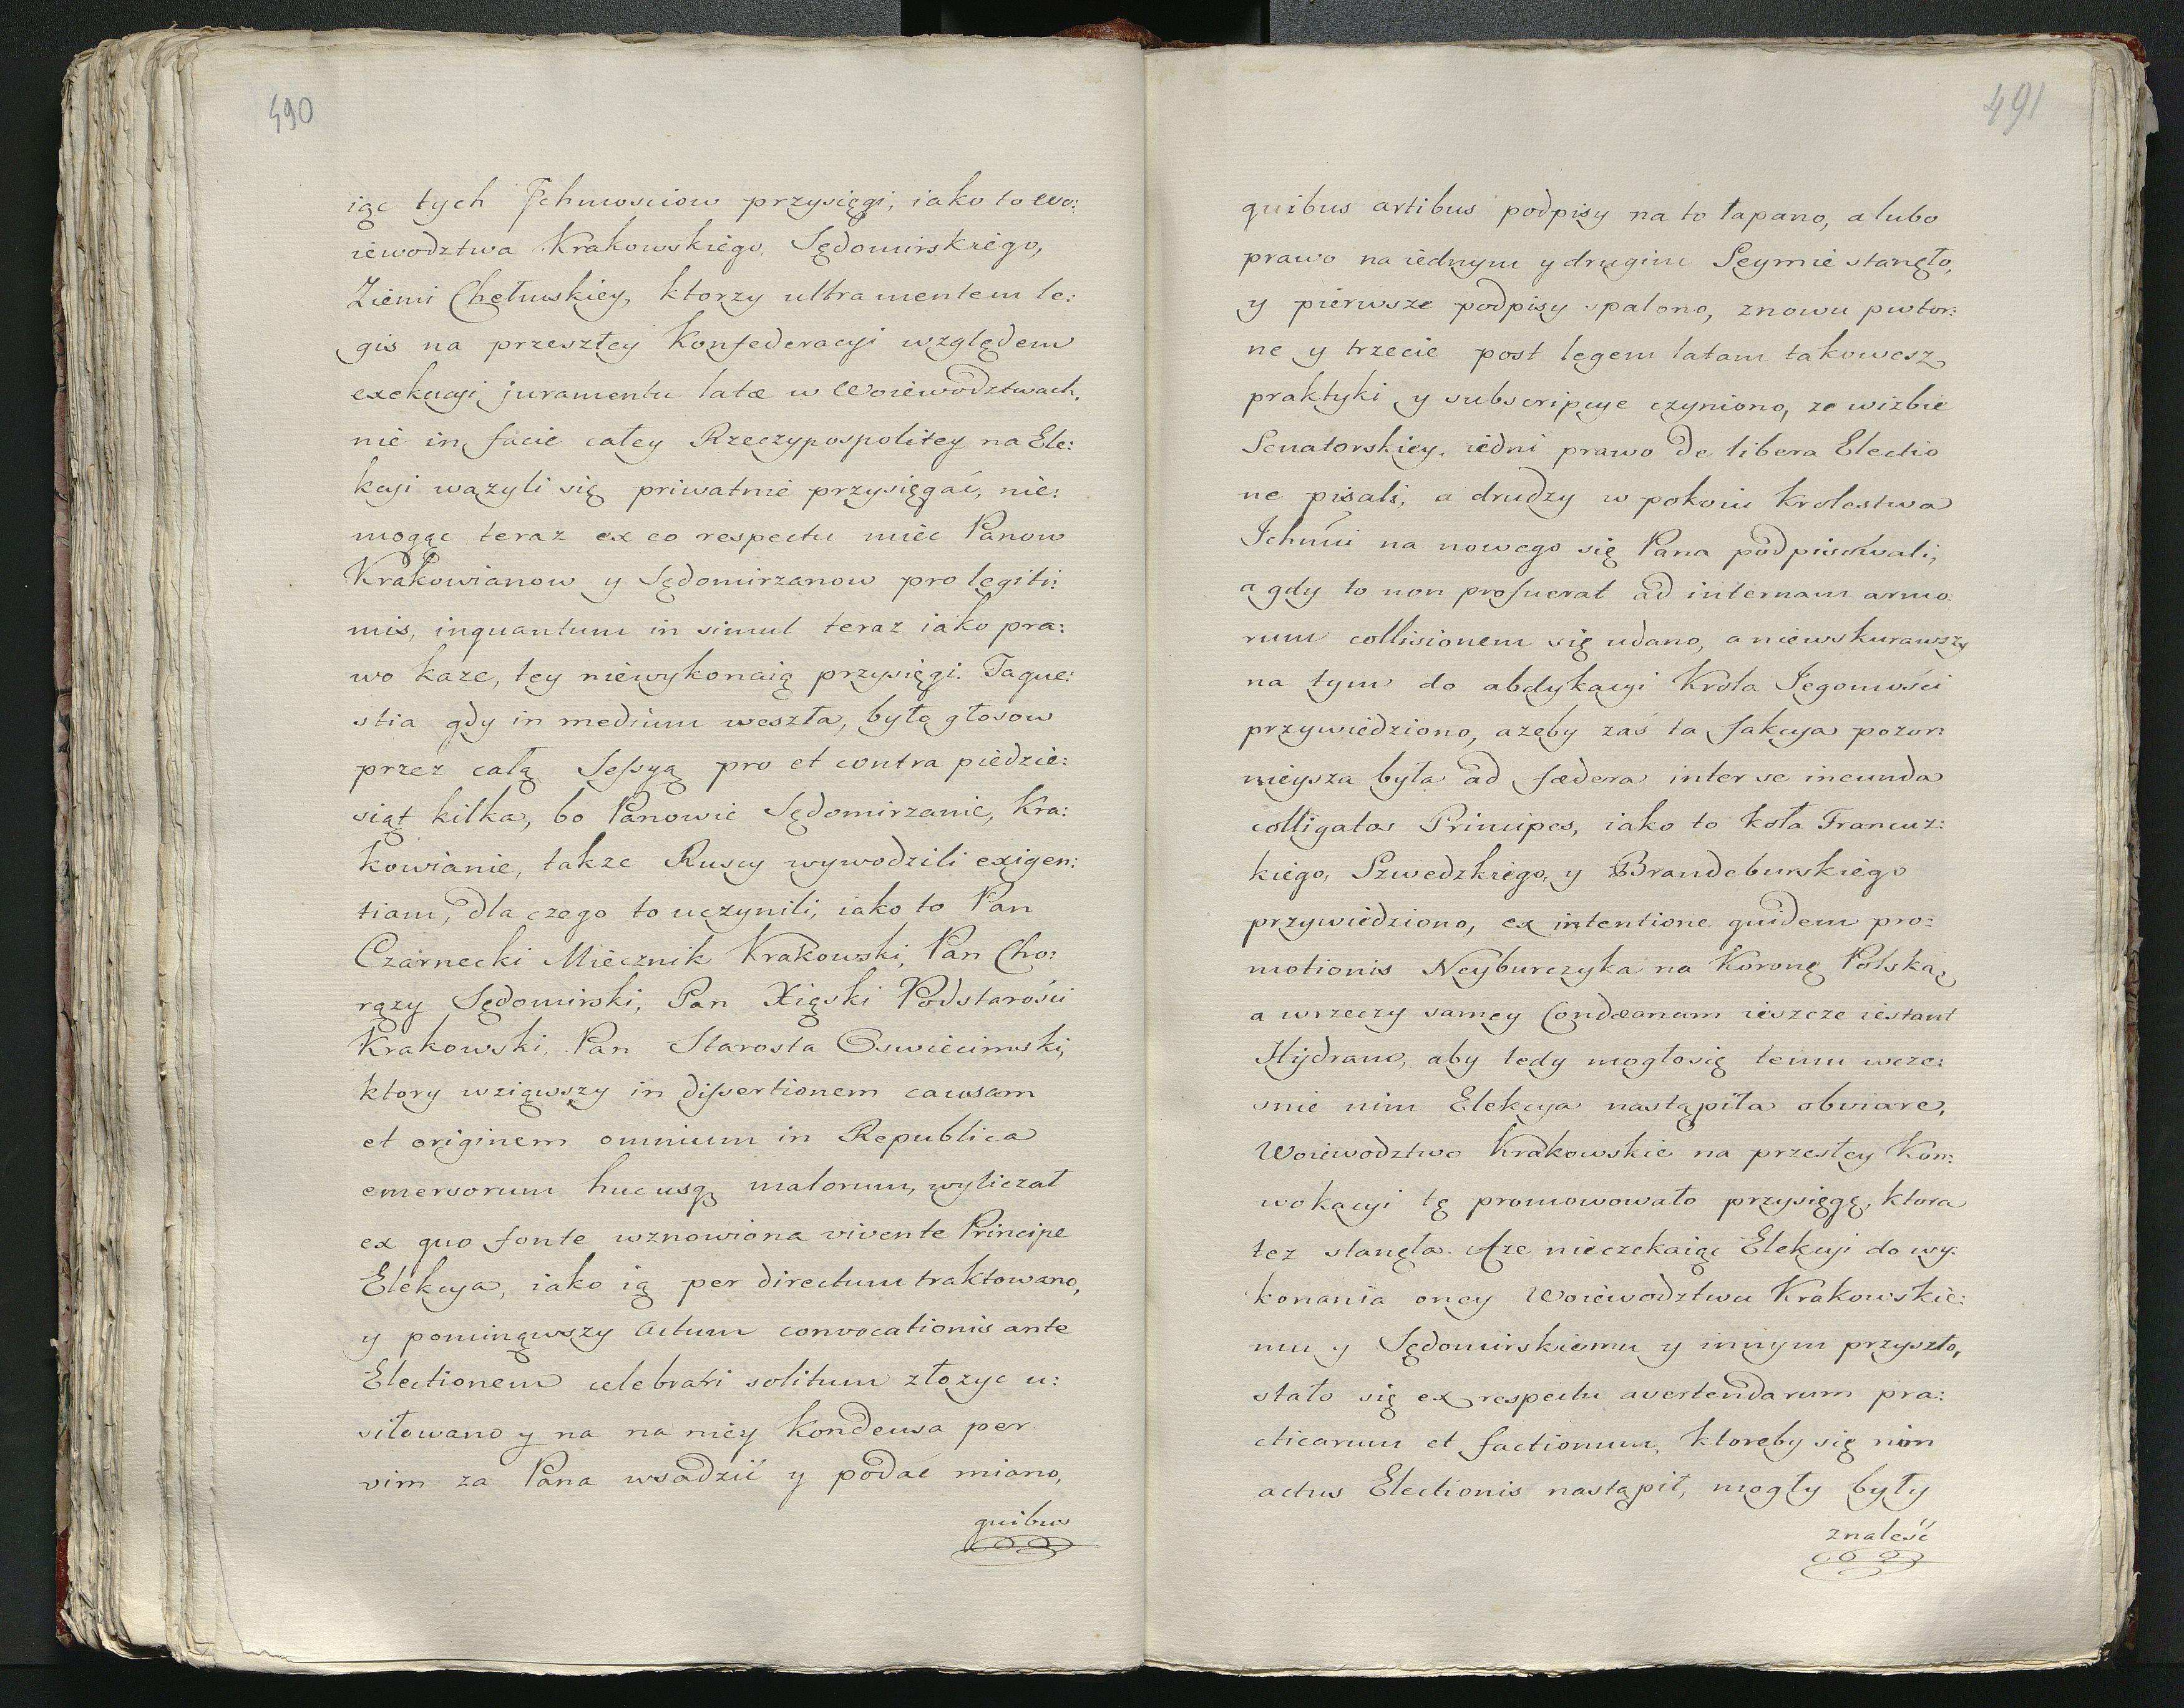 490
iąc tych Jchmosciow przysięgi, iako to Wo:
iewodztwa Krakowskiego, Sędomirskiego,
Ziemi Chełmskiey, ktorzy ultra mentem le:
gis na przeszłey Konfederacyi względem
exekucyi juramentu latæ w Woiewodztwach,
nie in facie całey Rzeczypospolitey na Ele:
kcyi wazyli się priwatnie przysięgać, nie:
mogąc teraz ex eo respectu miec Panow
Krakowianow y Sędomirzanow pro legiti:
mis, inquantum in simul teraz iako pra:
wo kaze, tey niewykonaią przysięgi. Ta que:
stia gdy in medium weszła, było głosow
przez całą Sessyą pro et contra piedzie:
siąt kilka, bo Panowie Sędomirzanie, Kra:
kowianie, takze Ruscy wywodzili exigen:
tiam, dla czego to uczynili, iako to Pan
Czarnecki Miecznik Krakowski, Pan Cho:
rązy Sędomirski, Pan Xięski Podstarości
Krakowski, Pan Starosta Oswiecimski,
ktory wziąwszy in dissertionem causam
et originem omnium in Republica
emersorum hucusq malorum, wyliczał
ex quo fonte wznowiona vivente Principe
Elekcya, iako ią per directum traktowano,
y pominąwszy actum convocationis ante
Electionem celebrari solitum złozyc u:
siłowano y na na niey Kondeusa per
vim za Pana wsadzić y podać miano,
quibus
491
quibus artibus podpisy na to łapano, a lubo
prawo na iednym y drugim Seymie stanęło,
y pierwsze podpisy spalono, znowu pwtor:
ne y trzecie post legem latam takowesz
praktyki y subscripcye czyniono, ze wizbie
Senatorskiey, iedni prawo de libera Electio
ne pisali, a drudzy w pokoiu Krolestwa
Ichmci na nowego się Pana podpisowali,
a gdy to non profuerat ad internam armo:
rum collisionem się udano, a niewskurawszy
na tym do abdykacyi Krola Jegomości
przywiedziono, azeby zaś ta fakcya pozor:
nieysza była ad fædera inter se ineunda
colligatos Principes, iako to koła Francuz:
kiego, Szwedzkiego, y Brandeburskiego
przywiedziono, ex intentione quidem pro:
motionis Neyburczyka na Koronę Polską,
a wrzeczy samey Condæanam ieszcze iestant
Hydram, aby tedy mogłosię temu wcze:
snie nim Elekcya nastąpiła obviare,
Woiewodztwo Krakowskie na przesłey Kon:
wokacyi tę promowowało przysięgę, ktora
tez stanęła. Aze nieczekaiąc Elekcyi do wy:
konania oney Woiewodztwu Krakowskie:
mu y Sędomirskiemu y innym przyszło,
stało się ex respectu avertendarum pra:
cticarum et factionum, ktoreby się nim
actus Electionis nastąpił, mogły były
znaleść